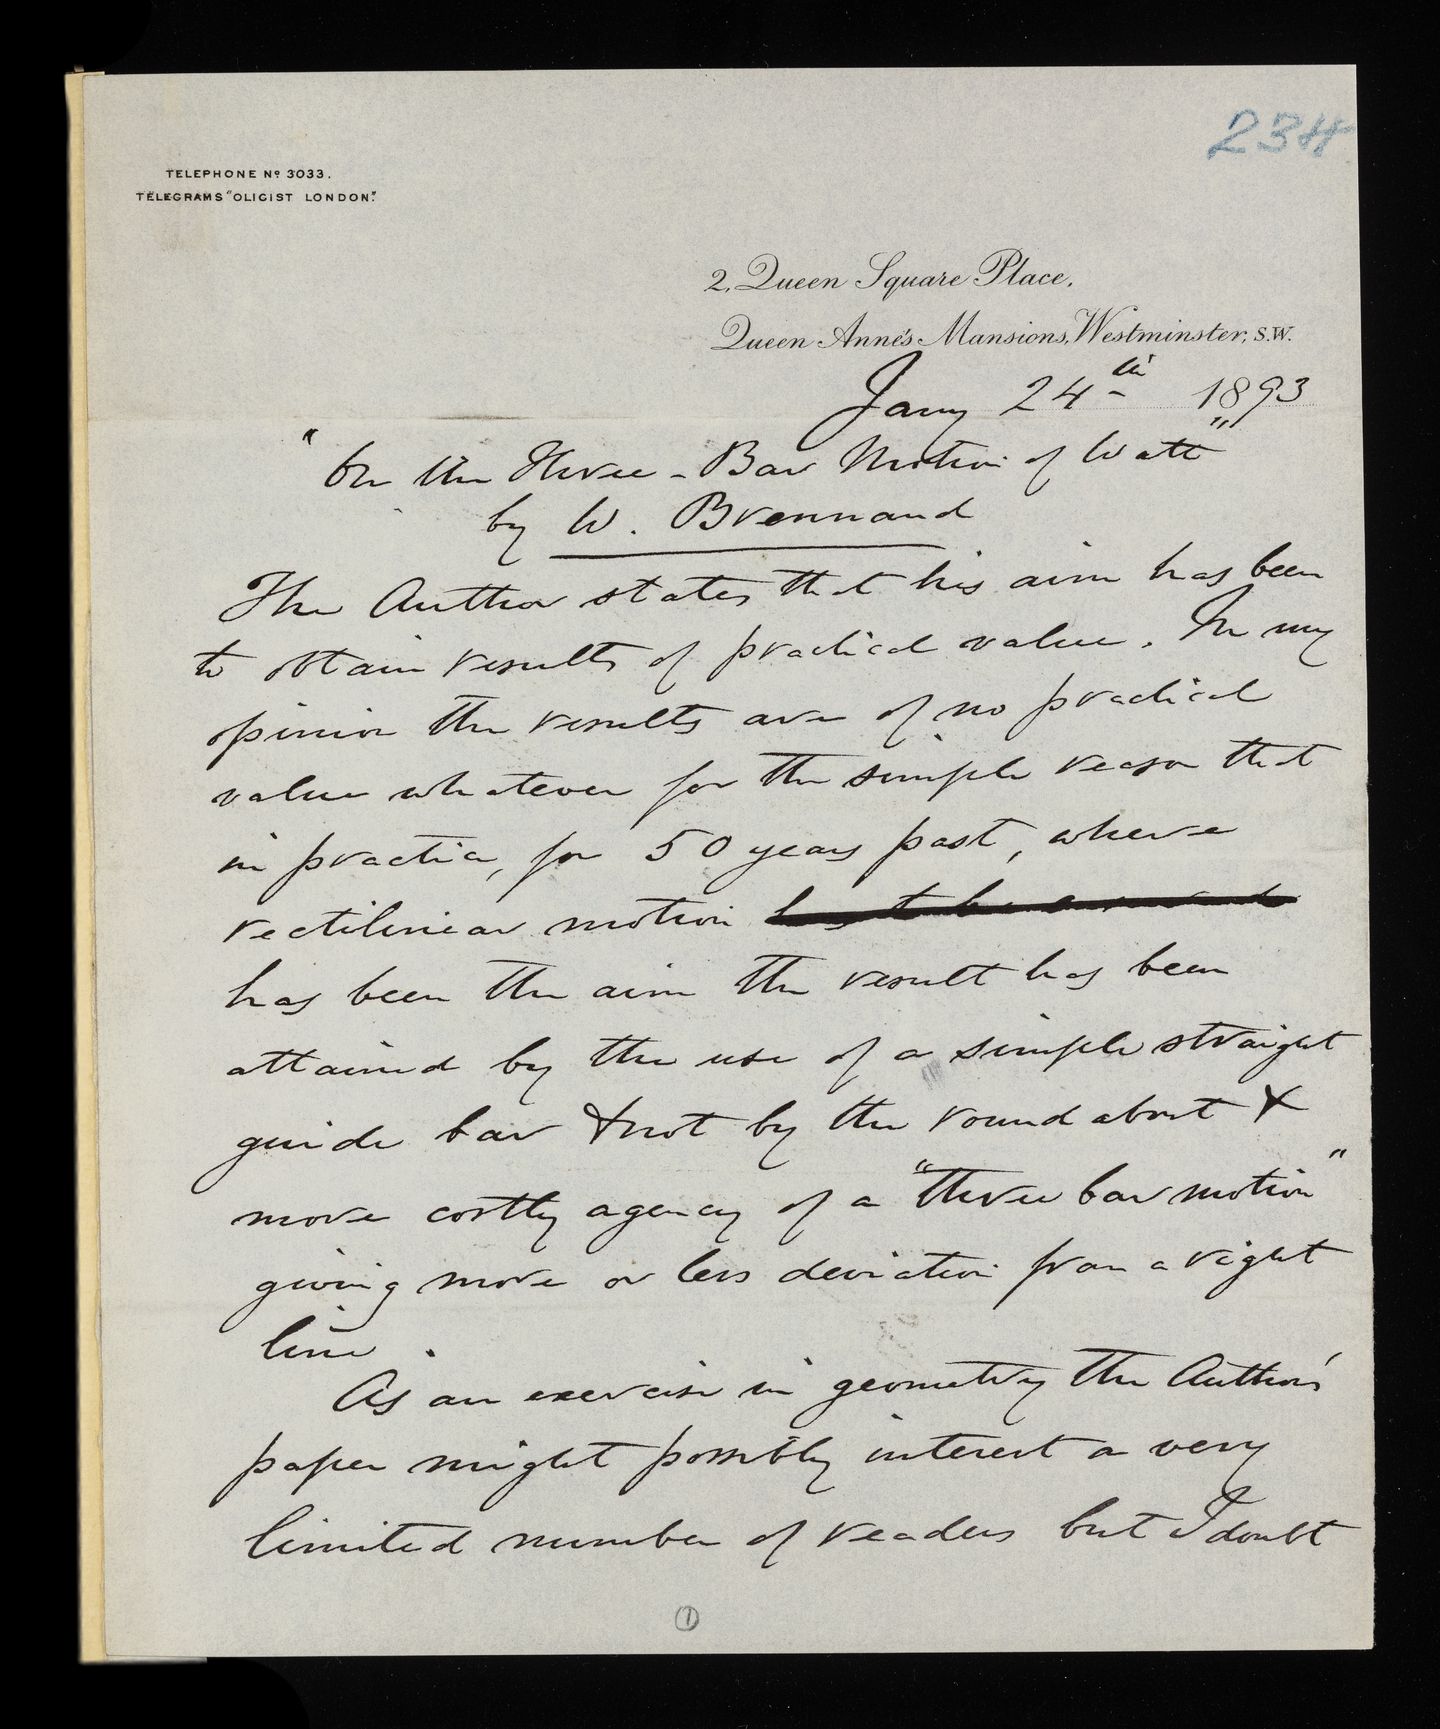 234
TELEPHONE Nº 3033.
TELEGRAMS "OLIGIST LONDON".
2, Queen Square Place,
Queen Anne's Mansions, Westminster, S.W.
Jany 24th 1893
"On the Three-Bar Motion of Watt"
by W. Brennand
The Author states that his aim has been
to obtain results of practical value. In my
opinion the results are of no practical
value whatever for the simple reason that
in practice, for 50 years past, where
rectilinear motion
has been the aim the result has been
attained by the use of a simple straight
guide bar & not by the round about &
more costly agency of a "three bar motion"
giving more or less deviation from a right
line.
As an exercise in geometry the Author's
paper might possibly interest a very
limited number of readers but I doubt
1